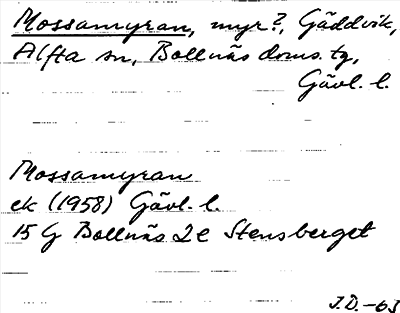 Mossamyran, myr?, Gäddvik,
Alfta sn, Bollnäs doms. tg,
Gävl. l.
Mossamyran
ek (1958) Gävl. l.
15 G Bollnäs 2 e Stensberget
J.D. -63